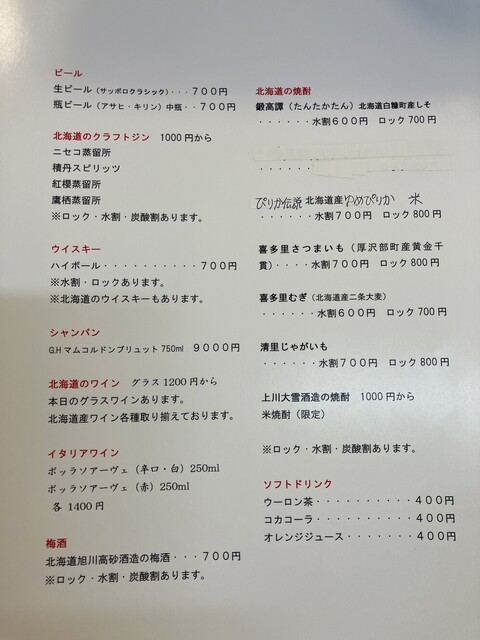 ビール
生ビール（サッポロクラシック）・・・７００円
瓶ビール（アサヒ・キリン）中瓶・・７００円
北海道のクラフトジン　1000円から
ニセコ蒸留所
積丹スピリッツ
紅櫻蒸留所
鷹栖蒸留所
※ロック・水割・炭酸割あります。
ウイスキー
ハイボール・・・・・・・・・・７００円
※水割・ロックあります。
※北海道のウイスキーもあります。
シャンパン
G.H マムコルドンブリュット750ml　９０００円
北海道のワイン　グラス1200円から
本日のグラスワインあります。
北海道産ワイン各種取り揃えております。
イタリアワイン
ボッラソアーヴェ（辛口・白）250ml
ボッラソアーヴェ（赤）250ml
各 1400円
梅酒
北海道旭川高砂酒造の梅酒・・・７００円
※ロック・水割・炭酸割あります。
北海道の焼酎
鍛高譚（たんたかたん）北海道白糠町産しそ
・・・・・・水割６００円　ロック 700円
・・・・・・
ぴりか伝説 北海道産ゆめぴりか　米
・・・・・・水割７００円　ロック 800円
喜多里さつまいも（厚沢部町産黄金千
貫）・・・・水割７００円　ロック 800円
喜多里むぎ（北海道産二条大麦）
・・・・・・水割６００円　ロック 700円
清里じゃがいも
・・・・・・水割７００円　ロック 800円
上川大雪酒造の焼酎　1000円から
米焼酎（限定）
※ロック・水割・炭酸割あります。
ソフトドリンク
ウーロン茶・・・・・・・・・・４００円
コカコーラ・・・・・・・・・・４００円
オレンジジュース・・・・・・・４００円